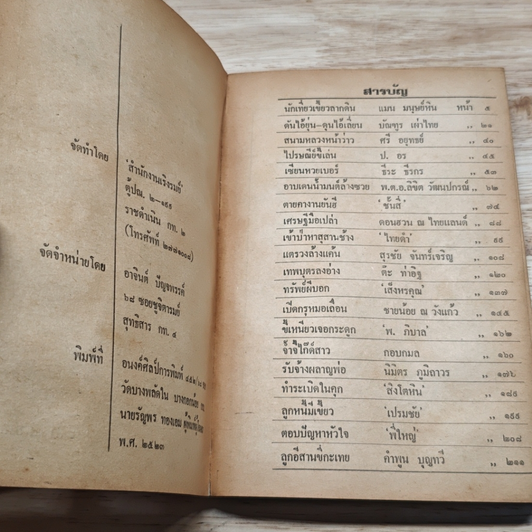 จัดทำโดย
'สำนักงานเริงรมย์'
ตู้ปณ. ๒-๑๕๕
ราชดำเนิน กท. ๒
(โทรศัพท์ ๒๗๗๑๐๐๔)
จัดจำหน่ายโดย
อาจินต์ ปัญจพรรค์
๖๘ ซอยชูจิตารมย์
สุทธิสาร กท. ๔
พิมพ์ที่
อนงค์ศิลป์การพิมพ์
วัดบางพลัดใน
นายรัญพร ทองเอม
พ.ศ. ๒๕๒๓
สารบัญ
นักเที่ยวเขี้ยวลากดิน แมน มนุษย์หิน หน้า ๕
ดันไอ้ยุ่น-ดุนไอ้เลี่ยน บัณฑูร เผ่าไทย ,, ๒๑
สนามหลวงหน้าว่าว ศรี อยุทธย์ ,, ๔๐
ไปรษณีย์ขี้เล่น ป. อร ,, ๔๕
เซียนหวยเบอร์ ธีระ ธีรกร ,, ๕๗
อาบเดนน้ำมนต์ล้างซวย พ.ต.อ.ลิขิต วัฒนปกรณ์ ,, ๖๒
ตายคางานยันฮี 'ชั้นสี่' ,, ๗๔
เศรษฐีมือเปล่า ดอนฮวน ณ ไทยแลนด์ ,, ๘๘
เข้าป่าหาสูสานช้าง 'ไทยดำ' ,, ๙๙
แตรวงล้างแค้น สุรชัย จันทร์เจริญ ,, ๑๐๘
เทพบุตรลงอ่าง ต๊ะ ท่าอิฐ ,, ๑๒๐
ทรัพย์ผีบอก 'เส็งหรคุณ' ,, ๑๓๗
เปิดกรุหมอเถื่อน ชายน้อย ณ วังแก้ว ,, ๑๔๕
ขี้เหนียวเจอกระดูก 'พ. ภิบาล' ,, ๑๖๒
จ้ำจี้ไกด์สาว กอบกมล ,, ๑๖๘
รับจ้างผลาญพ่อ นิมิตร ภูมิถาวร ,, ๑๗๖
ทำระเบิดในคุก 'สิงโตหิน' ,, ๑๘๕
ลูกหนี้มีเขี้ยว 'เปรมชัย' ,, ๑๙๙
ตอบปัญหาหัวใจ 'พี่ใหญ่' ,, ๒๐๘
ลูกอีสานขี่กะเทย คำพูน บุญทวี ,, ๒๑๑